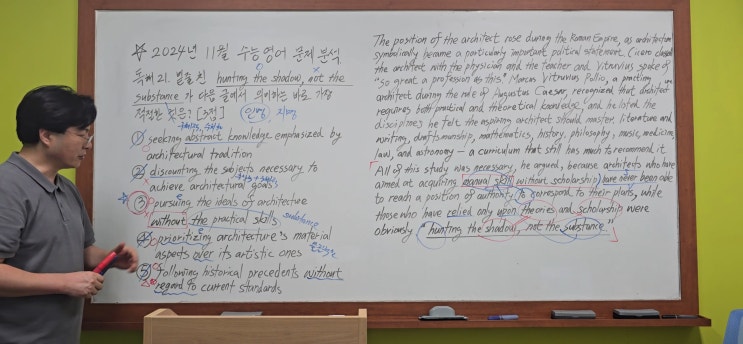 ☆ 2024년 11월 수능영어 문제 분석
독해 21. 밑줄 친 hunting the shadow, not the
substance 가 다음 글에서 의미하는 바로 가장
적절한 것은? [3점] 인명 지명
① seeking abstract knowledge emphasized by
architectural tradition
② discounting the subjects necessary to
achieve architectural goals
☆ ③ pursuing the ideals of architecture
without the practical skills substance
④ prioritizing architecture's material
aspects over its artistic ones
⑤ following historical precedents without
regard to current standards
The position of the architect rose during the Roman Empire, as architecture
symbolically became a particularly important political statement. Cicero classed
the architect with the physician and the teacher and Vitruvius spoke of
"so great a profession as this." Marcus Vitruvius Pollio, a practicing
architect during the rule of Augustus Caesar, recognized that architecture
requires both practical and theoretical knowledge, and he listed the
disciplines he felt the aspiring architect should master: literature and
writing, draftsmanship, mathematics, history, philosophy, music, medicine,
law, and astronomy — a curriculum that still has much to recommend it.
All of this study was necessary, he argued, because architects who have
aimed at acquiring manual skill without scholarship have never been able
to reach a position of authority to correspond to their plans, while
those who have relied only upon theories and scholarship were
obviously "hunting the shadow, not the substance."